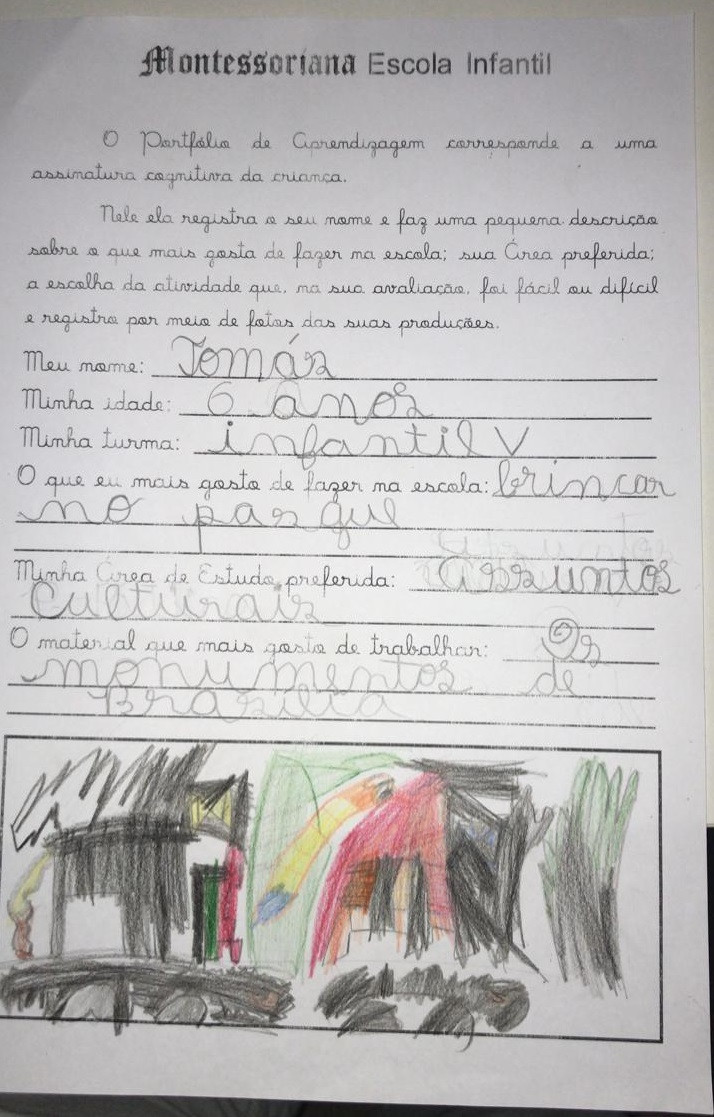 Montessoriana Escola Infantil
O Portfólio de Aprendizagem corresponde a uma
assinatura cognitiva da criança.
Nele ela registra o seu nome e faz uma pequena descrição
sobre o que mais gosta de fazer na escola; sua Área preferida;
a escolha da atividade que, na sua avaliação, foi fácil ou difícil
e registro por meio de fotos das suas produções.
Meu nome: Tomás
Minha idade: 6 anos
Minha turma: infantil V
O que eu mais gosto de fazer na escola: brincar
no parque
Minha Área de Estudo preferida: assuntos
Culturais
O material que mais gosto de trabalhar: Os
monumentos de
Brasília